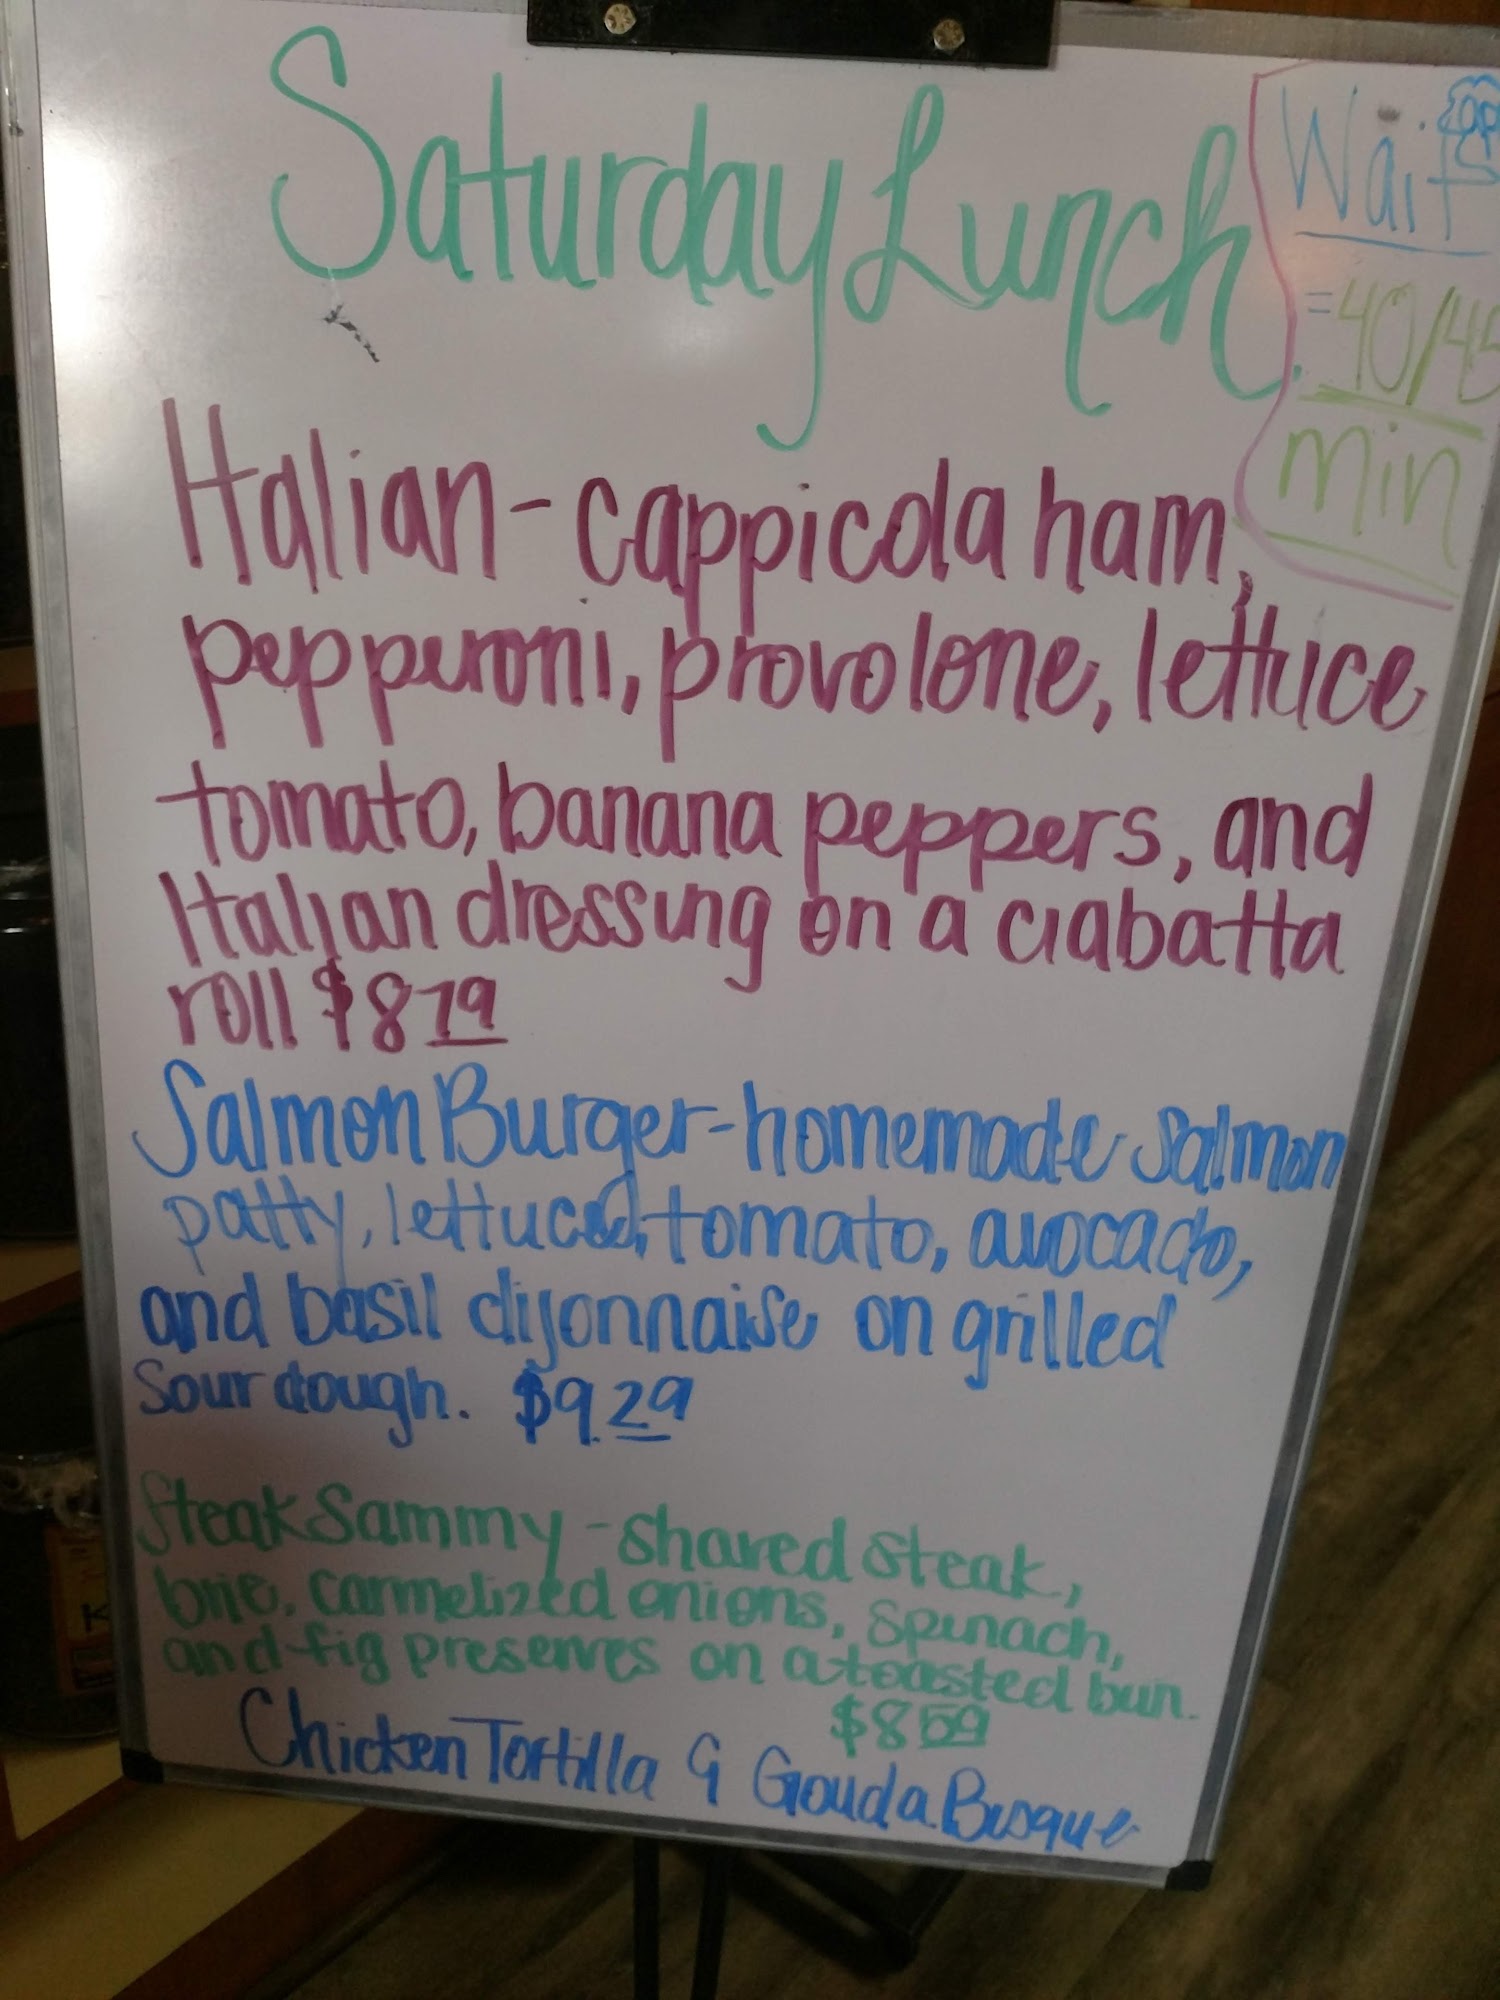 Saturday Lunch
Wait
= 40/45
min
Italian - cappicola ham,
pepperoni, provolone, lettuce
tomato, banana peppers, and
Italian dressing on a ciabatta
roll $8 79
Salmon Burger - homemade salmon
patty, lettuce, tomato, avocado,
and basil dijonnaise on grilled
Sour dough. $9.29
Steak Sammy - shared steak,
brie, carmelized onions, spinach,
and fig preserves on a toasted bun.
$8 59
Chicken Tortilla & Gouda Bisque